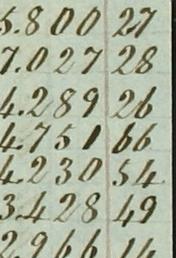 5.800 27
7.027 28
4.289 26
4.751 66
4.230 54
3.428 49
2.966 14